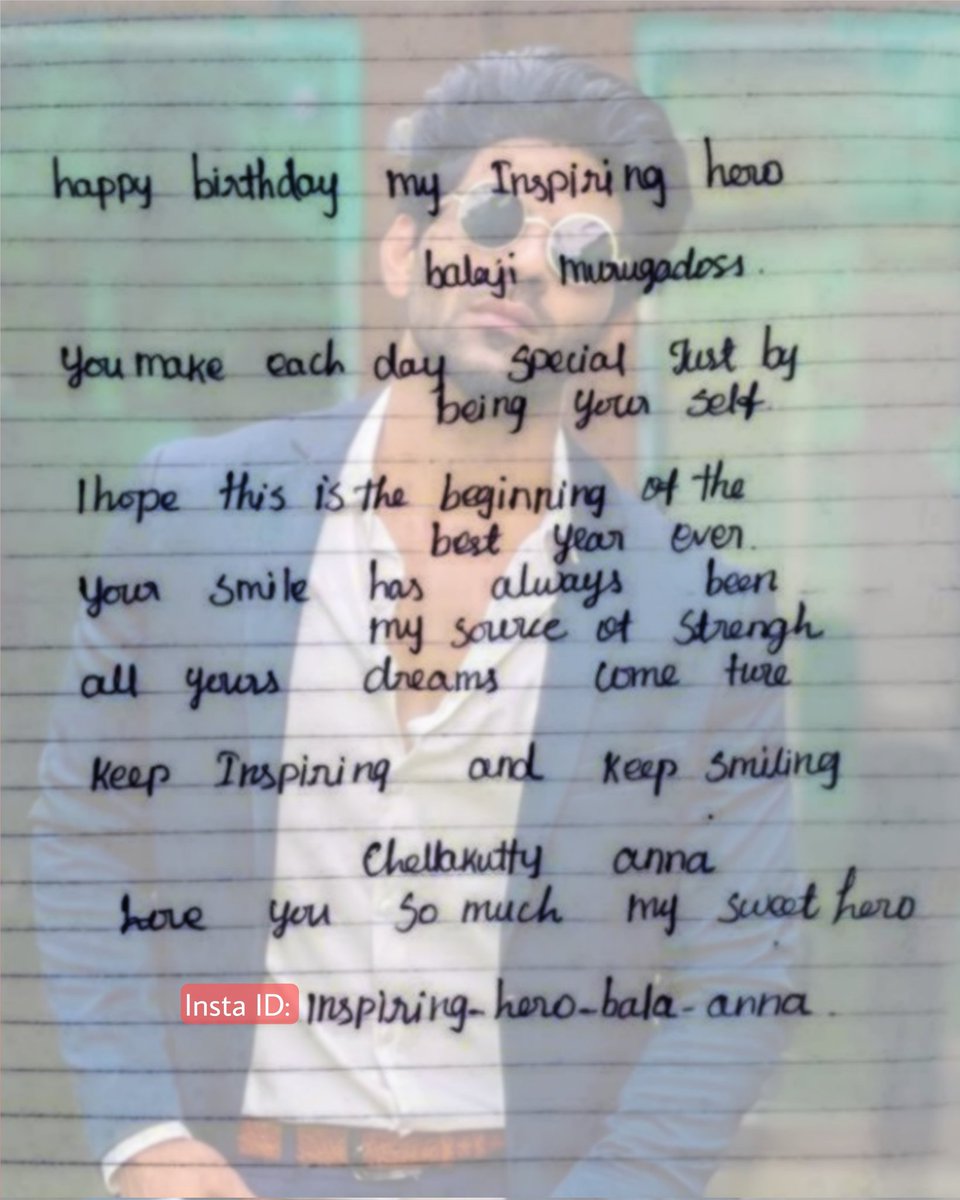 happy birthday my Inspiring hero
balaji murugadoss.
You make each day special Just by
being your self.
I hope this is the beginning of the
best year ever.
Your smile has always been
my source of Strengh
all yours dreams come ture
Keep Inspiring and Keep smiling
Chellakutty anna
Love you so much my sweet hero
Insta ID: Inspiring-hero-bala-anna.